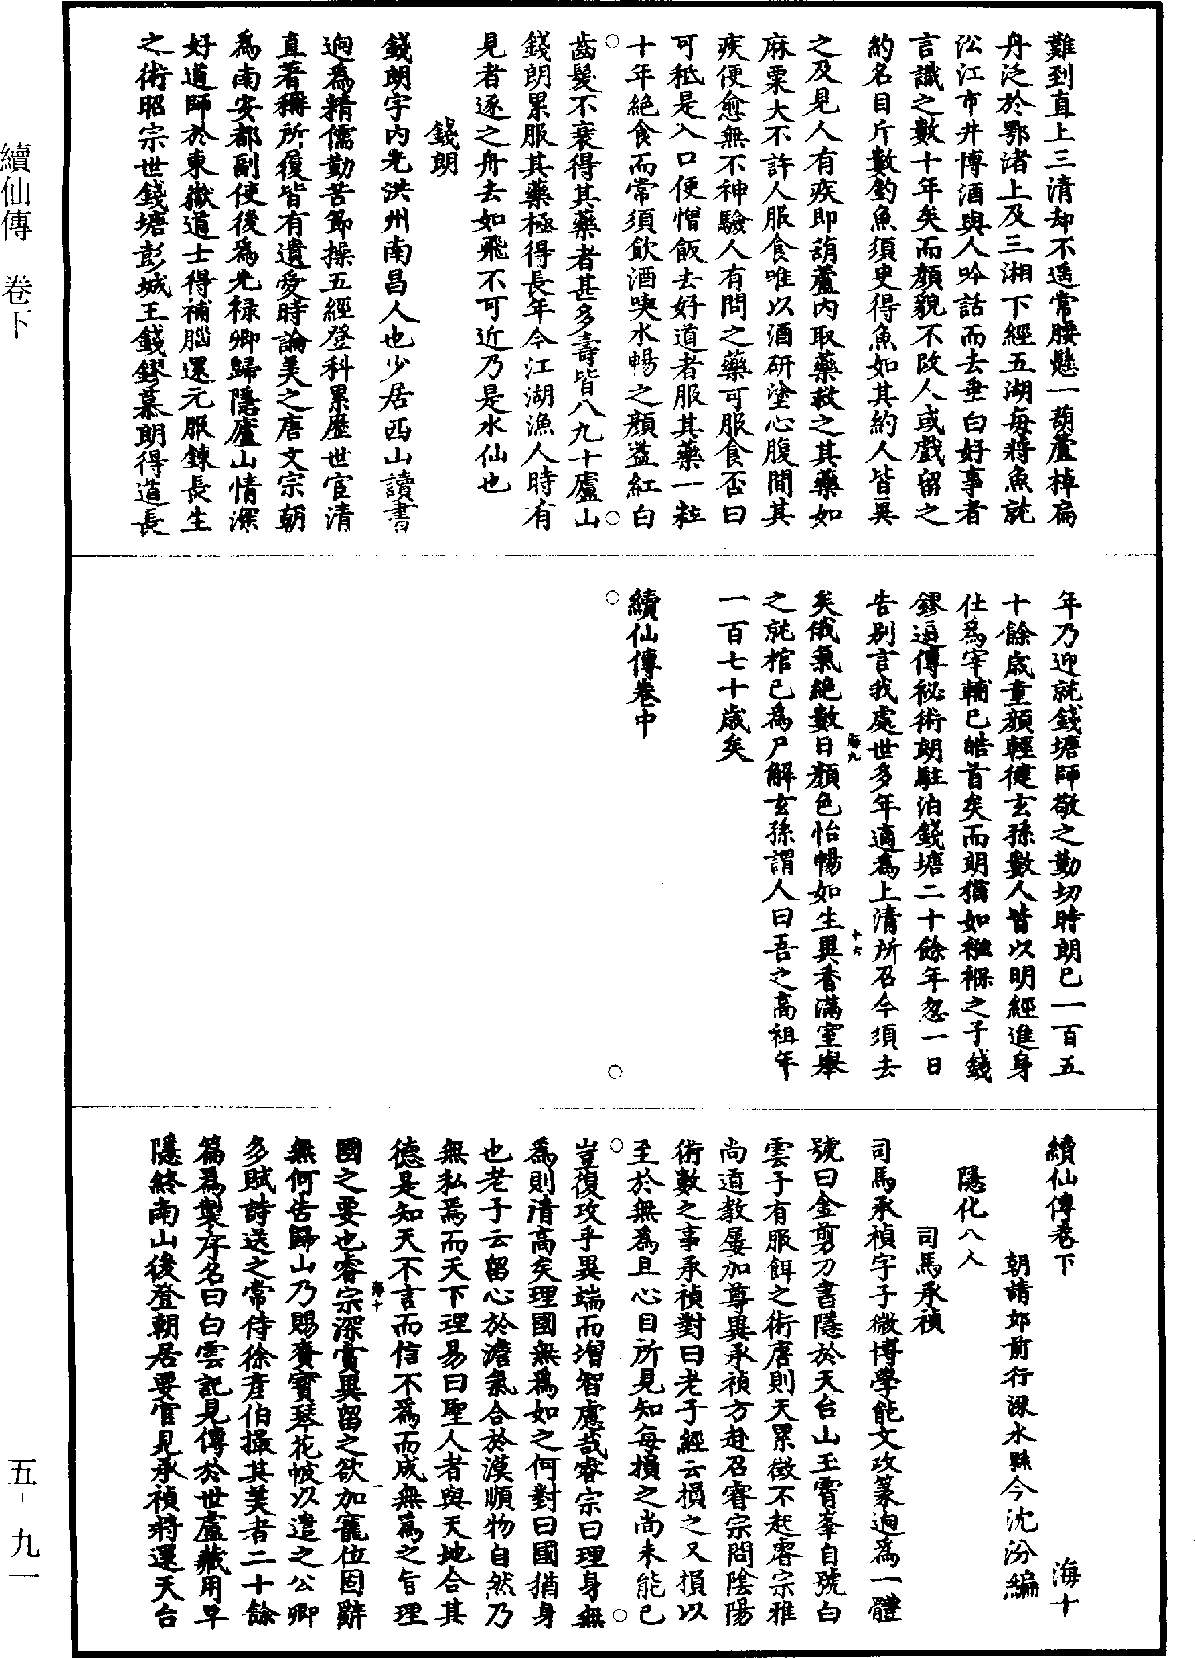 難到直上三清却不遥常腰懸一葫蘆棹扁
舟泛於鄂渚上及三湘下經五湖每將魚就
㳂江市井博酒與人吟話而去垂白好事者
言識之數十年矣而顔貌不改人或戲留之
約名目斤數釣魚須臾得魚如其約人皆異
之及見人有疾即葫蘆内取藥救之其藥如
麻粟大不許人服食唯以酒研塗心腹間其
疾便愈無不神驗人有問之藥可服食否曰
可秪是入口便憎飯去好道者服其藥一粒
十年絶食而常須飲酒喫水暢之顔益紅白
齒髮不衰得其藥者甚多壽皆八九十廬山
錢朗累服其藥極得長年今江湖漁人時有
見者逐之舟去如飛不可近乃是水仙也
錢朗
錢朗字内光洪州南昌人也少居西山讀書
迥為精儒勤苦節操五經登科累歷世官清
直著稱所復皆有遺愛時論美之唐文宗朝
為南安都副使後為光禄卿歸隱廬山情深
好道師於東嶽道士得補腦還元服鍊長生
之術昭宗世錢塘彭城王錢鏐慕朗得道長
年乃迎就錢塘師敬之勤切時朗已一百五
十餘歳童顔輕健玄孫數人皆以明經進身
仕為宰輔已皓首矣而朗猶如襁褓之子錢
鏐逼傳祕術朗駐泊錢塘二十餘年忽一日
告别言我處世多年適為上清所召今須去
海九 十六
矣俄氣絶數日顔色怡暢如生異香滿室舉
之就棺已為尸解玄孫謂人曰吾之高祖年
一百七十歳矣
續仙傳卷中
續仙傳卷下 海十
朝請郎前行溧水縣令沈汾編
隱化八人
司馬承禎
司馬承禎字子微博學能文攻篆迥為一體
號曰金剪刀書隱於天台山玉霄峯自號白
雲子有服餌之術唐則天累徵不起睿宗雅
尚道教屢加尊異承禎方赴召睿宗問陰陽
術數之事承禎對曰老子經云損之又損以
至於無為且心目所見知每損之尚未能已
豈復攻乎異端而增智慮哉睿宗曰理身無
為則清高矣理國無為如之何對曰國猶身
也老子云留心於澹氣合於漠順物自然乃
無私焉而天下理易曰聖人者與天地合其
德是知天不言而信不為而成無為之旨理
海十 一
國之要也睿宗深賞異留之欲加寵位固辭
無何告歸山乃賜賚寶琴花帔以遣之公卿
多賦詩送之常侍徐彦伯撮其美者二十餘
篇為製序名曰白雲記見傳於世盧藏用早
隱終南山後登朝居要官見承禎將還天台
續仙傳 卷下
五-九一